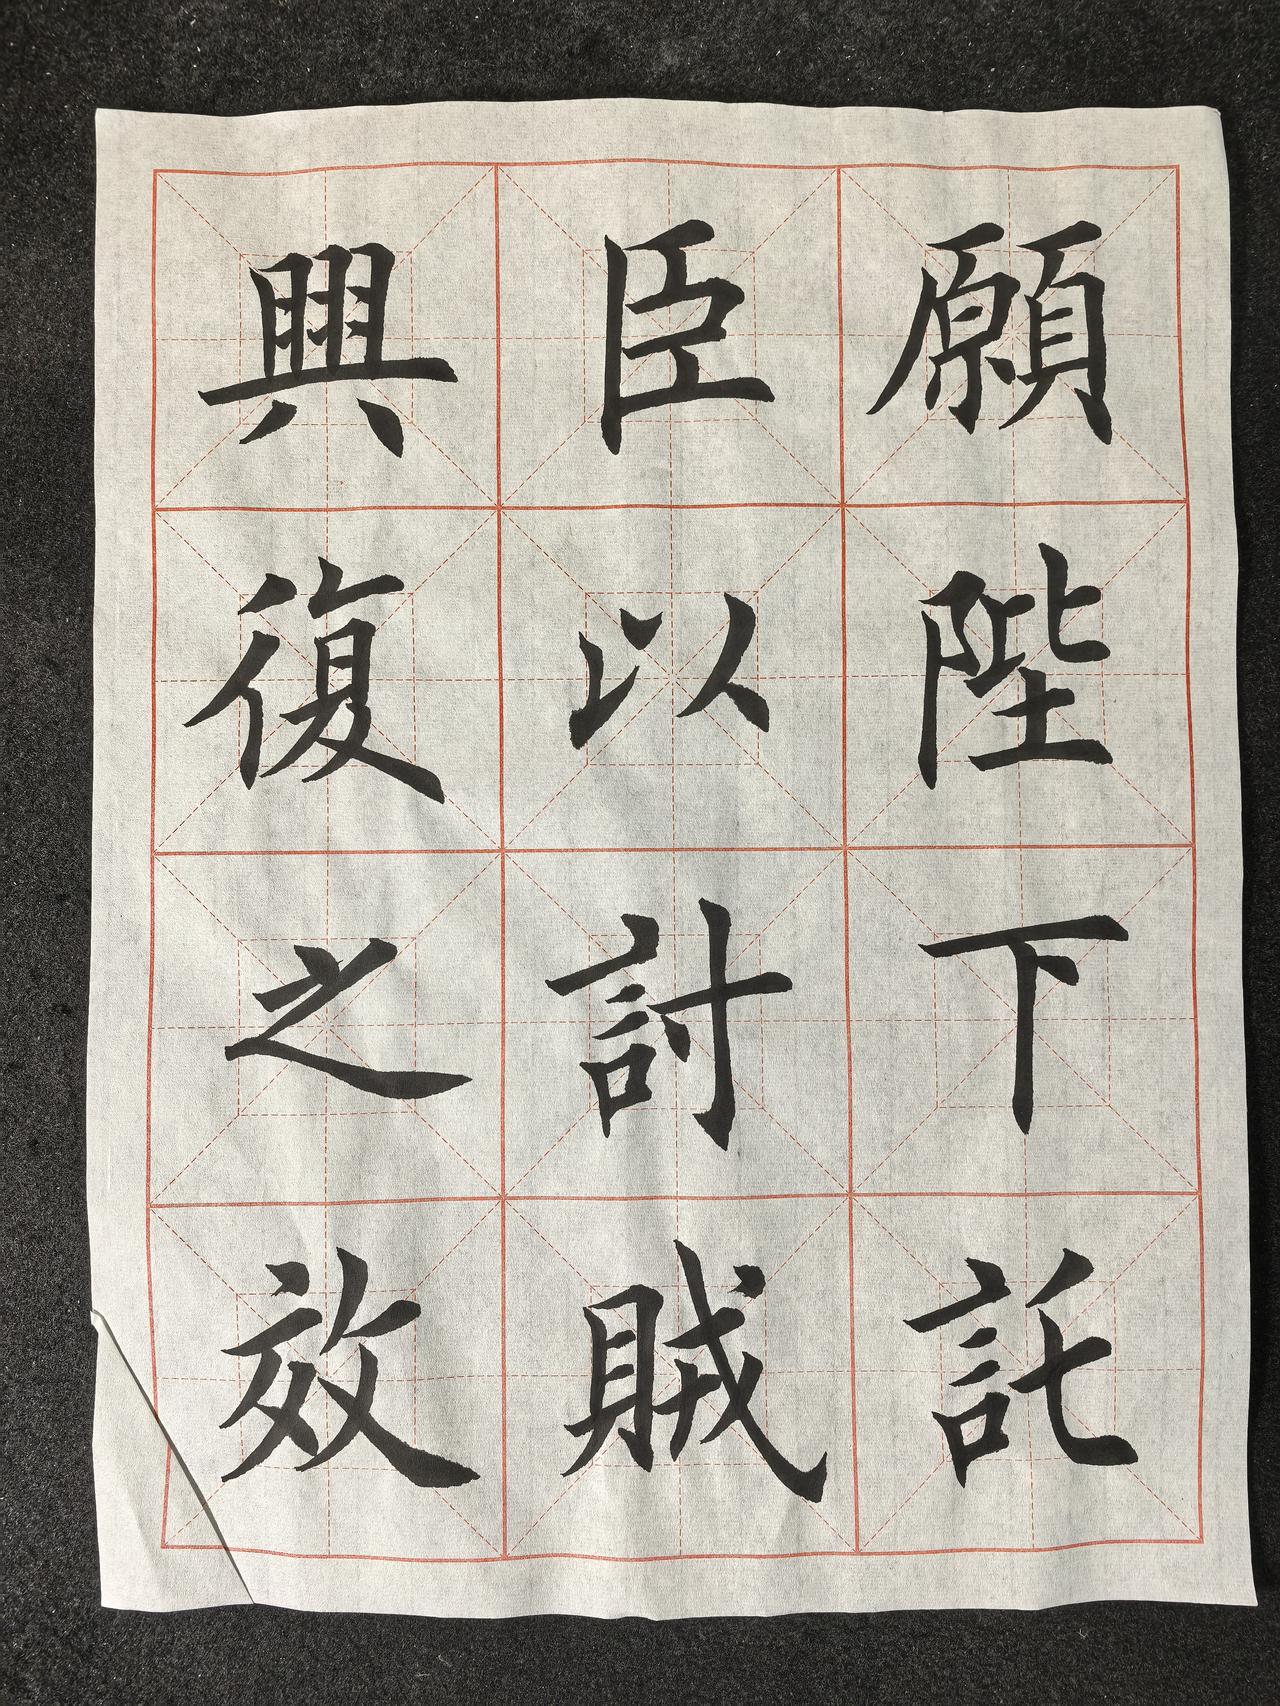 願陛下託
臣以討賊
興復之效